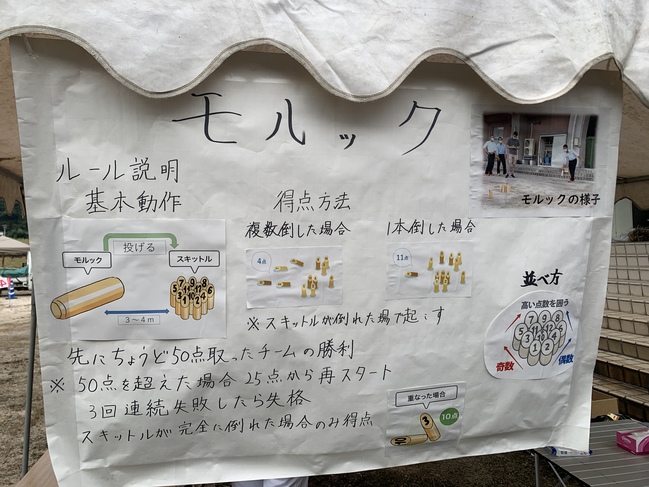 モルック
ルール説明
基本動作
投げる
モルック
スキットル
7 9 8
5 11 12 6
3 10 4
1 2
3～4m
得点方法
複数倒した場合
4点
1本倒した場合
11点
※スキットルが倒れた場で起こす
モルックの様子
並べ方
高い点数を囲う
7 9 8
5 11 12 6
3 10 4
1 2
奇数
偶数
先にちょうど50点取ったチームの勝利
※50点を超えた場合25点から再スタート
3回連続失敗したら失格
スキットルが完全に倒れた場合のみ得点
重なった場合
3
10点